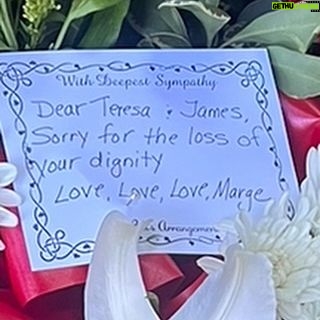 GETHU
With Deepest Sympathy
Dear Teresa & James,
Sorry for the loss of
your dignity
Love, Love, Love, Marge
Arrangemen